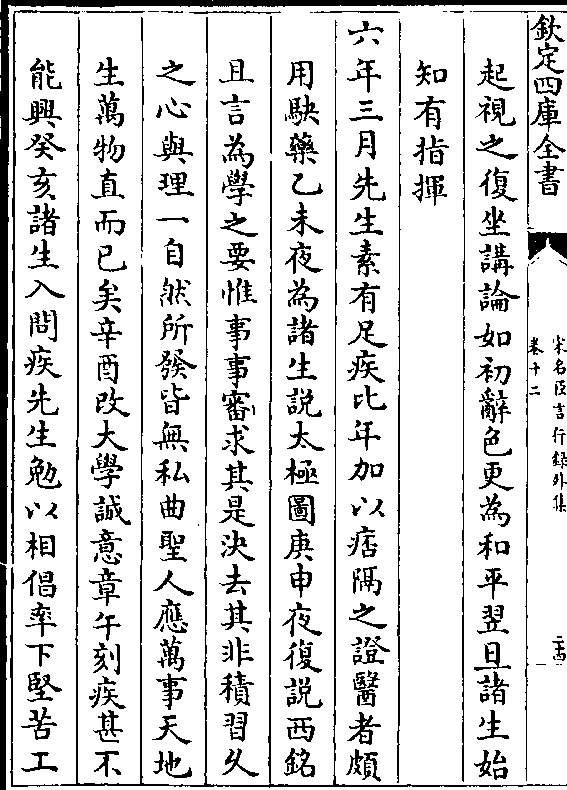 欽定四庫全書
宋名臣言行録外集
卷十二
二十四
起視之復坐講論如初辭色更為和平翌旦諸生始
知有指揮
六年三月先生素有足疾比年加以痞隔之證醫者頗
用駃藥乙未夜為諸生説太極圖庚申夜復説西銘
且言為學之要惟事事審求其是決去其非積習久
之心與理一自然所發皆無私曲聖人應萬事天地
生萬物直而已矣辛酉改大學誠意章午刻疾甚不
能興癸亥諸生入問疾先生勉以相倡率下堅苦工